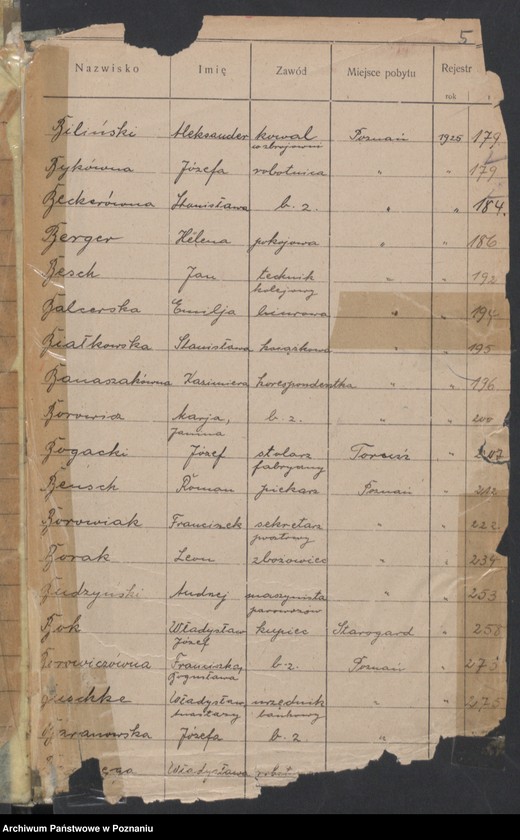 5
Nazwisko Imię Zawód Miejsce pobytu Rejestr
rok
Biliński Aleksander kowal Poznań 1925 179
w zbrojowni
Bykówna Józefa robotnica " " 179
Beckerówna Stanisława b. z. " " 184.
Berger Helena pokojowa " " 186
Besch Jan technik " " 192
kolejowy
Balcerska Emilja biurowa " " 194
Białkowska Stanisława książkowa " " 195
Banaszakówna Kazimiera korespondentka " " 196
Marja, b. z. " " 200
Janina
Bogacki Józef stolarz Toruń " 207
fabryczny
Bensch Roman piekarz Poznań " 212
Borowiak Franciszek sekretarz " " 222
Borak Leon zbożowiec " " 234
Budzyński Andrzej maszynista " " 253
parowozów
Bok Władysław kupiec Starogard " 258
Józef
Borowiczówna Franciszka, b. z. Poznań " 273
Bogusława
Władysław, urzędnik " " 275
bankowy
Baranowska Józefa b. z " "
Władysława
Archiwum Państwowe w Poznaniu